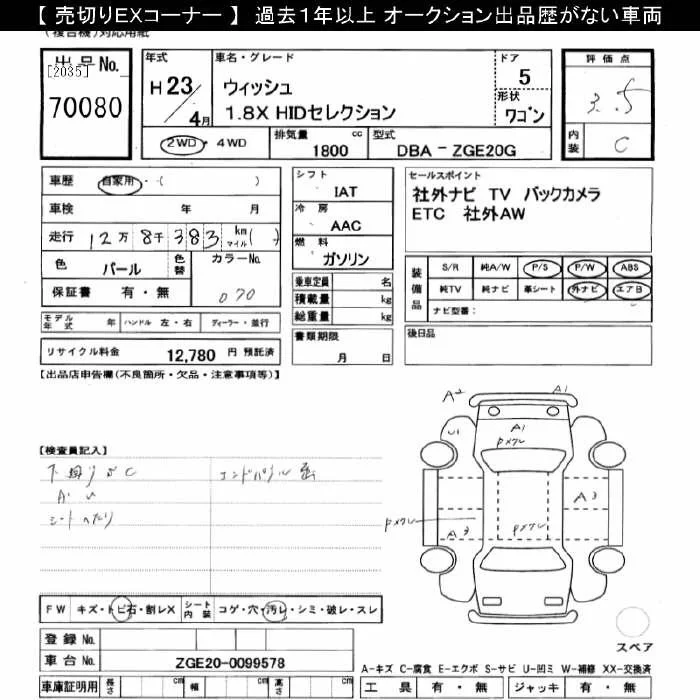 【 売切りEXコーナー 】 過去1年以上 オークション出品歴がない車両
(複合機)対応用紙
出品No.
[2035]
70080
年式
H23/4月
車名・グレード
ウィッシュ
1.8X HIDセレクション
ドア
5
形状
ワゴン
評価点
3.5
内装
C
2WD・4WD
排気量 cc
1800
型式
DBA - ZGE20G
車歴 自家用・( )
車検 年 月
走行 12万8千383 km マイル( )
色 パール 色替 カラーNo. 070
保証書 有・無
シフト
IAT
冷房
AAC
燃料
ガソリン
乗車定員 名
積載量 kg
総重量 kg
書類期限
月 日
セールスポイント
社外ナビ TV バックカメラ
ETC 社外AW
装備品
S/R 純A/W P/S P/W ABS
純TV 純ナビ 革シート 外ナビ エアB
ナビ型番:
後日品
モデル年式 年 ハンドル 左・右 ディーラー・並行
リサイクル料金 12,780 円 預託済
【出品店申告欄(不良箇所・欠品・注意事項等)】
【検査員記入】
下廻りサC
A・U
シートへたり
A2
A1
U1
A1
Pメクレ
A3
Pメクレ
Pメクレ
A3
スペア
FW キズ・トビ石・割レX シート内装 コゲ・穴・汚レ・シミ・破レ・スレ
登録No.
車台No. ZGE20-0099578
車庫証明用 長さ cm 幅 cm 高さ cm
A-キズ C-腐食 E-エクボ S-サビ U-凹ミ W-補修 XX-交換済
工具 有・無 ジャッキ 有・無